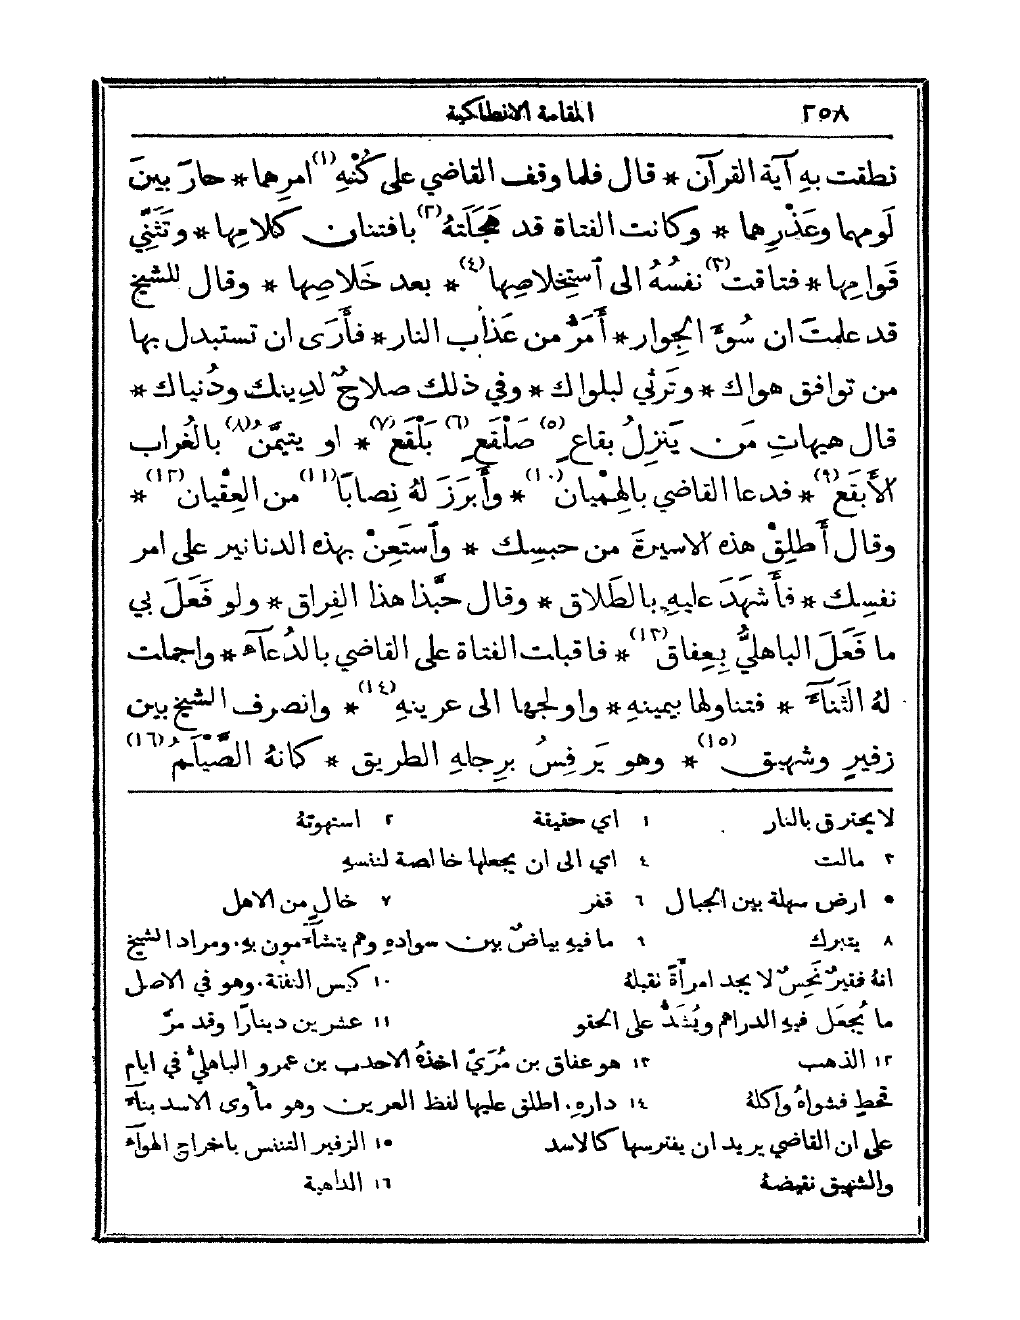 ٢٥٨ المقامة الانطاكية
نطقت بهِ آية القرآن * قال فلما وقف القاضي على كُنْهِ (١) امرِهما * حارَ بينَ
لَومهما وعَذْرِهما * وكانت الفتاة قد هَجَلَتهُ (٢) بافتنان كلامِها * وتَثَنِّي
قَوامِها * فتاقت (٣) نفسُهُ الى اَستِخلاصِها (٤) * بعد خَلاصِها * وقال للشيخ
قد علمتَ ان سُوءَ الجِوار * أَمَرُّ من عَذاب النار * فأَرَى ان تستبدل بها
من توافق هواك * وتَرثي لبلواك * وفي ذلك صلاحٌ لدِينك ودُنياك *
قال هيهاتِ مَن يَنزِلُ بقاعٍ (٥) صَلْقَعٍ (٦) بَلْقَع (٧) * او يتيمَّنُ (٨) بالغُراب
الأَبقَع (٩) * فدعا القاضي بالهِمْيان (١٠) * وأَبرَزَ لهُ نِصابًا (١١) من العِقْيان (١٢) *
وقال أَطلِقْ هذه الاسيرةَ من حبسِك * واَستَعِنْ بهذه الدنانير على امر
نفسِك * فأَشهَدَ عليهِ بالطَلاق * وقال حبَّذا هذا الفِراق * ولو فَعَلَ بي
ما فَعَلَ الباهليُّ بِعِفاق (١٣) * فاقبلت الفتاة على القاضي بالدُعآء * واجملت
لهُ الثَنآءَ * فتناولها بيمينهِ * واولجها الى عرينهِ (١٤) * وانصرف الشيخ بين
زفيرٍ وشهيق (١٥) * وهو يَرفِسُ برِجلهِ الطريق * كانهُ الصَّيْلَمُ (١٦)
لا يحترق بالنار ١ اي حقيقة ٢ استهوتهُ
٣ مالت ٤ اي الى ان يجعلها خالصة لنفسهِ
٥ ارض سهلة بين الجبال ٦ قفر ٧ خالٍ من الاهل
٨ يتبرك ٩ ما فيهِ بياضٌ بين سوادهِ وهم يتشآَءمون بهِ. ومراد الشيخ
انهُ فقيرٌ نَحِسٌ لا يجد امرأَةً تقبلهُ ١٠ كيس النفقة. وهو في الاصل
ما يُجعَل فيهِ الدراهم ويُشَدُّ على الحقو ١١ عشرين دينارًا وقد مرَّ
١٢ الذهب ١٣ هو عفاق بن مُرَيّ اخذهُ الاحدب بن عمرو الباهليُّ في ايام
قحطٍ فشواهُ وأكلهُ ١٤ دارهِ. اطلق عليها لفظ العرين وهو مأوى الاسد بنآءً
على ان القاضي يريد ان يفترسها كالاسد ١٥ الزفير التنفس باخراج الهوآء
والشهيق نقيضهُ ١٦ الداهية